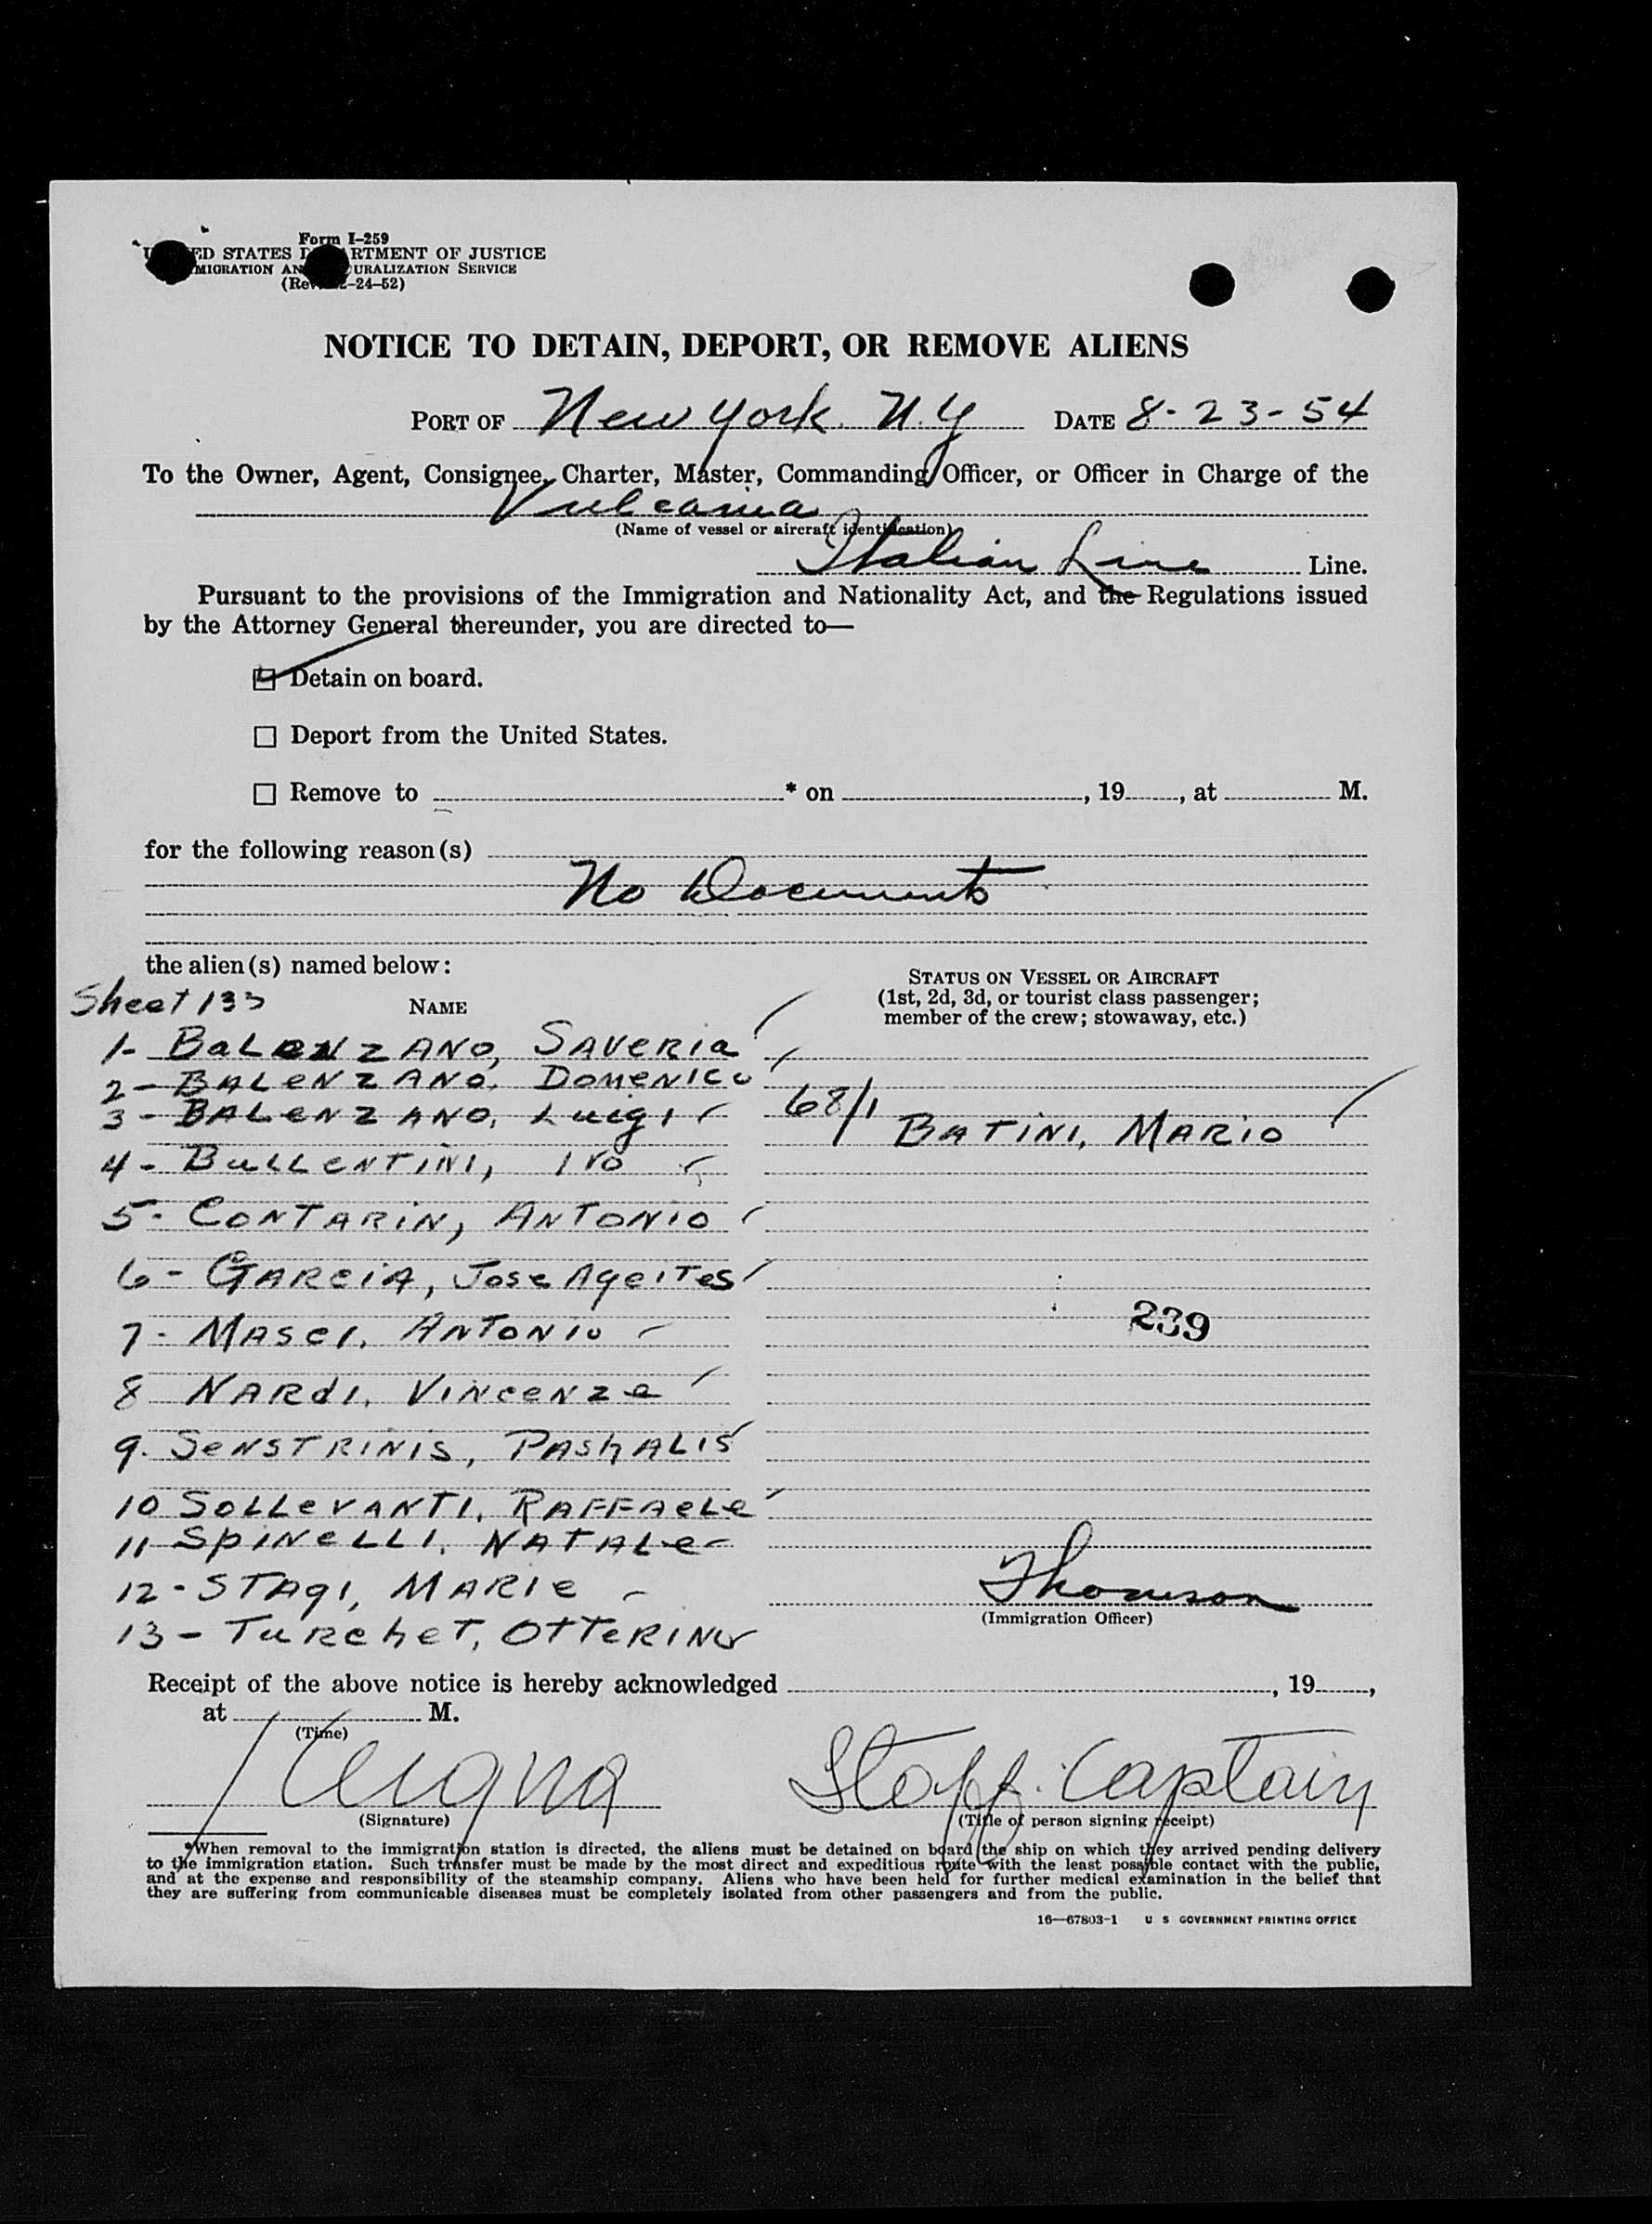 Form I-259
ED STATES D RTMENT OF JUSTICE
MIGRATION AN URALIZATION SERVICE
(Rev. -24-52)
NOTICE TO DETAIN, DEPORT, OR REMOVE ALIENS
PORT OF New York. N.Y DATE 8-23-54
To the Owner, Agent, Consignee, Charter, Master, Commanding Officer, or Officer in Charge of the
Vulcania
(Name of vessel or aircraft identification)
Italian Line Line.
Pursuant to the provisions of the Immigration and Nationality Act, and the Regulations issued
by the Attorney General thereunder, you are directed to—
☑ Detain on board.
☐ Deport from the United States.
☐ Remove to * on , 19 , at M.
for the following reason(s)
No Documents
the alien(s) named below:
STATUS ON VESSEL OR AIRCRAFT
(1st, 2d, 3d, or tourist class passenger;
member of the crew; stowaway, etc.)
Sheet 133 NAME
1- BALENZANO, SAVERIA
2- BALENZANO. DOMENICO
3- BALENZANO, Luigi
68/1 BATINI, MARIO
4- BULLENTINI, IVO
5- CONTARIN, ANTONIO
6- GARCIA, Jose AgeiTes
7- MASCI, ANTONIO
239
8 NARDI, VINCENZA
9. SENSTRINIS, PASHALIS
10 SOLLEVANTI, RAFFAELE
11 SPINELLI, NATALE
12- STAGI, MARIE
Thomson
(Immigration Officer)
13- TURCHET, OTTERINO
Receipt of the above notice is hereby acknowledged , 19 ,
at M.
(Time)
Staff. Captain
(Signature) (Title of person signing receipt)
*When removal to the immigration station is directed, the aliens must be detained on board the ship on which they arrived pending delivery
to the immigration station. Such transfer must be made by the most direct and expeditious route with the least possible contact with the public,
and at the expense and responsibility of the steamship company. Aliens who have been held for further medical examination in the belief that
they are suffering from communicable diseases must be completely isolated from other passengers and from the public.
16—67803-1 U S GOVERNMENT PRINTING OFFICE